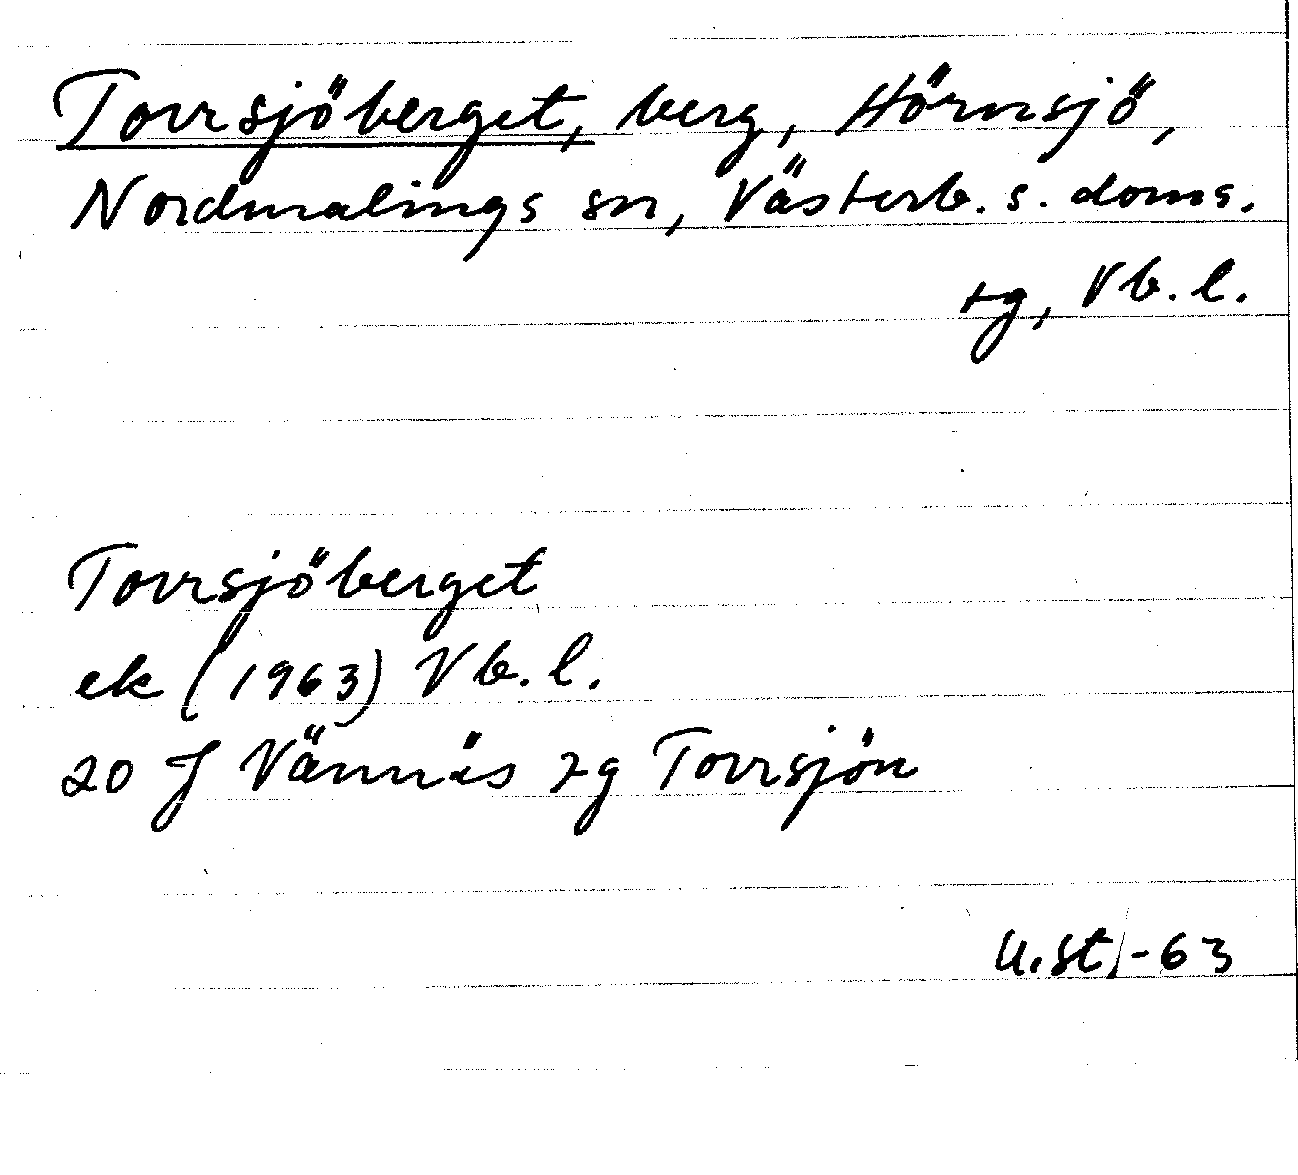 Torrsjöberget, berg, Hörnsjö,
Nordmalings sn, Västerb. s. doms.
tg, Vb. l.
Torrsjöberget
ek (1963) Vb. l.
20 J Vännäs rg Torrsjön
U.St/-63